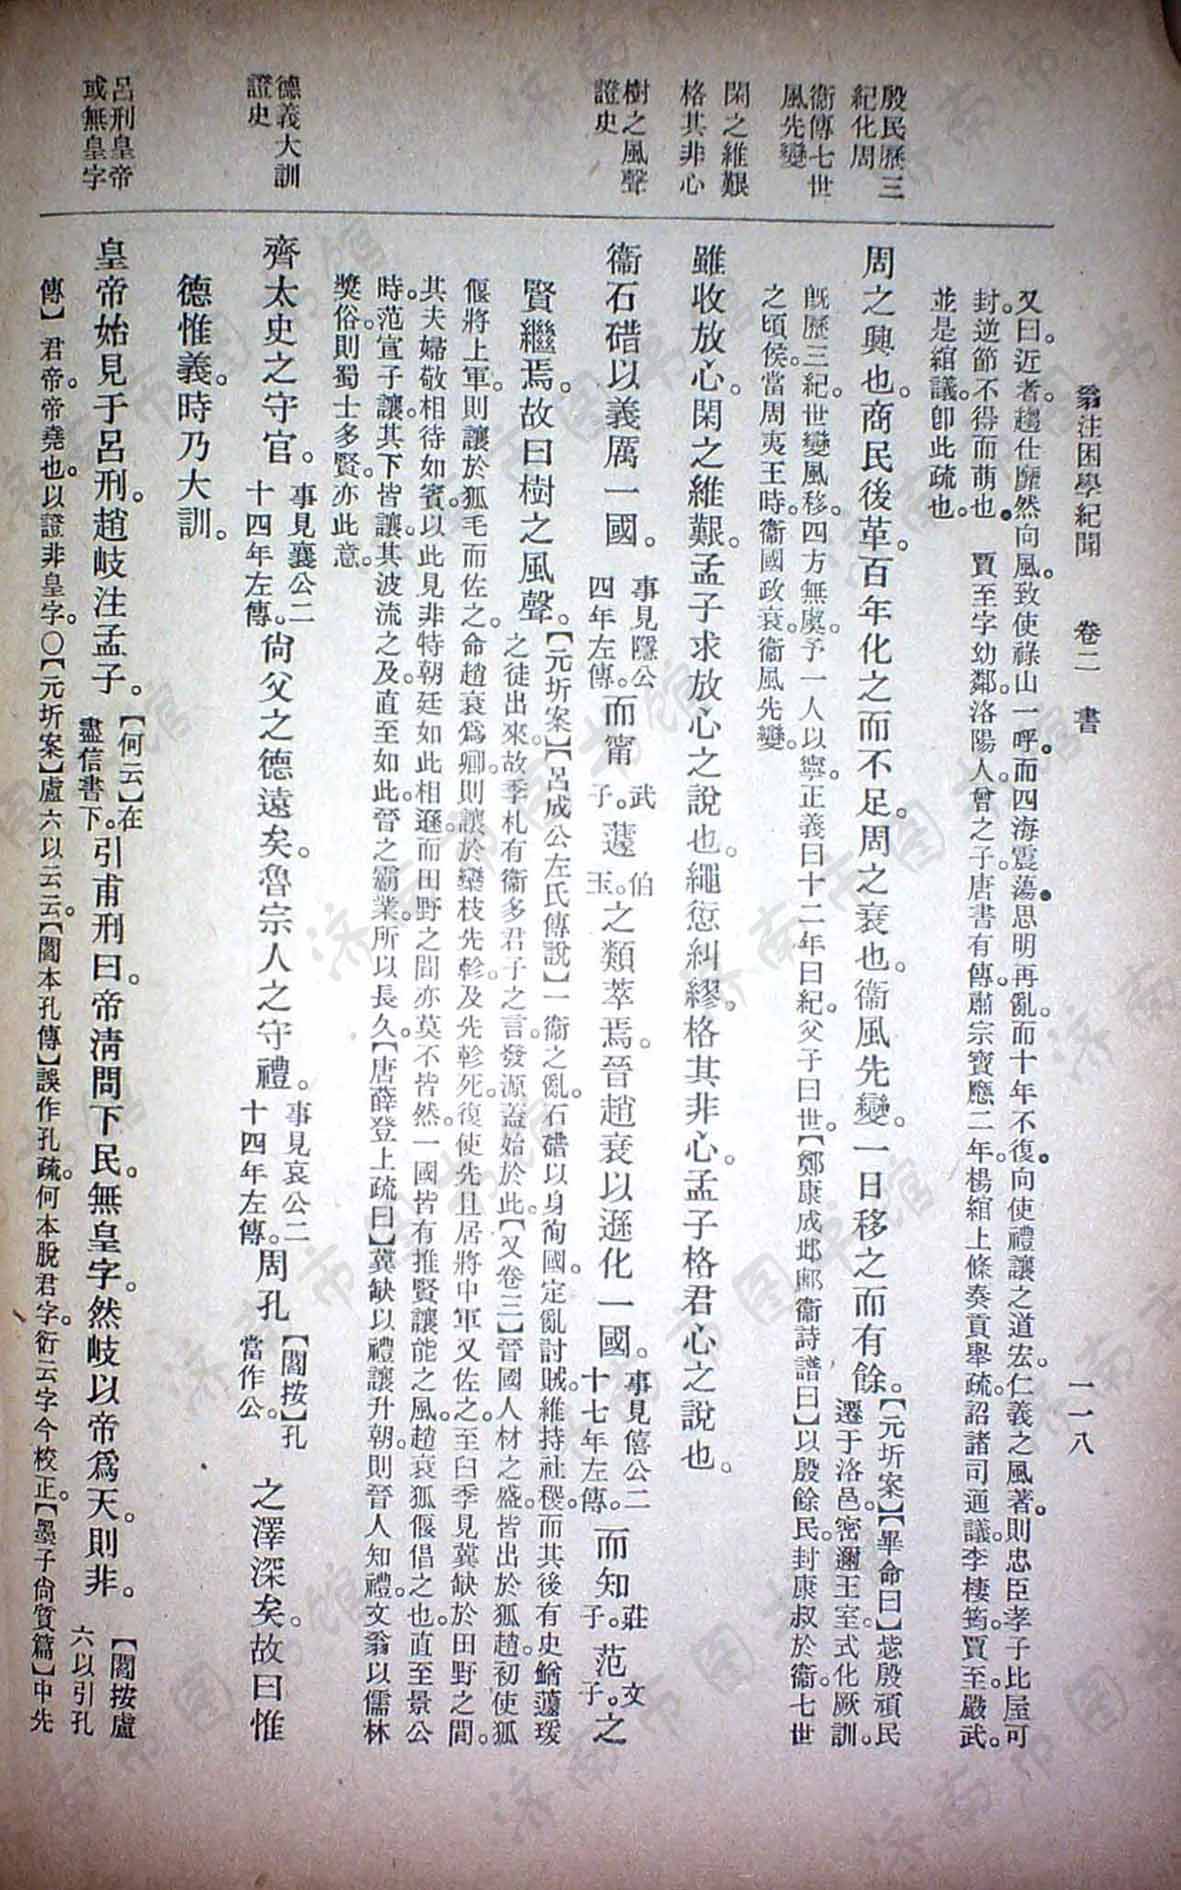 翁注困學紀聞　卷二　書　一一八
殷民歷三
紀化周
衞傳七世
風先變
閑之維艱
格其非心
樹之風聲
證史
德義大訓
證史
呂刑皇帝
或無皇字
又曰。近者。趨仕靡然向風。致使祿山一呼。而四海震蕩。思明再亂。而十年不復。向使禮讓之道宏。仁義之風著。則忠臣孝子比屋可
封。逆節不得而萌也。　賈至字幼鄰。洛陽人。曾之子。唐書有傳。肅宗寶應二年。楊綰上條奏貢舉疏。詔諸司通議。李棲筠。賈至。嚴武。
並是綰議。卽此疏也。
周之興也。商民後革。百年化之而不足。周之衰也。衞風先變。一日移之而有餘。【元圻案】【畢命曰】毖殷頑民
遷于洛邑。密邇王室。式化厥訓。
旣歷三紀。世變風移。四方無虞。予一人以寧。正義曰。十二年曰紀。父子曰世。【鄭康成邶鄘衞詩譜曰】以殷餘民。封康叔於衞。七世
之頃侯。當周夷王時。衞國政衰。衞風先變。
雖收放心。閑之維艱。孟子求放心之說也。繩愆糾繆。格其非心。孟子格君心之說也。
衞石碏以義厲一國。事見隱公
四年左傳。而甯武
子。蘧伯
玉。之類萃焉。晉趙衰以遜化一國。事見僖公二
十七年左傳。而知莊
子。范文
子。之
賢繼焉。故曰樹之風聲。【元圻案】【呂成公左氏傳說】一衞之亂。石碏以身徇國。定亂討賊。維持社稷。而其後有史鰌蘧瑗
之徒出來。故季札有衞多君子之言。發源蓋始於此。【又卷三】晉國人材之盛。皆出於狐趙。初使狐
偃將上軍。則讓於狐毛而佐之。命趙衰爲卿。則讓於欒枝先軫。及先軫死。復使先且居將中軍又佐之。至臼季見冀缺於田野之間。
共夫婦敬相待如賓。以此見非特朝廷如此相遜。而田野之間亦莫不皆然。一國皆有推賢讓能之風。趙衰狐偃倡之也。直至景公
時。范宣子讓。其下皆讓。其波流之及。直至如此。晉之霸業。所以長久。【唐薛登上疏曰】冀缺以禮讓升朝。則晉人知禮。文翁以儒林
獎俗。則蜀士多賢。亦此意。
齊太史之守官。事見襄公二
十四年左傳。尙父之德遠矣。魯宗人之守禮。事見哀公二
十四年左傳。周孔【閻按】孔
當作公。之澤深矣。故曰惟
德惟義。時乃大訓。
皇帝始見于呂刑。趙岐注孟子。【何云】在
盡信書下。引甫刑曰。帝淸問下民。無皇字。然岐以帝爲天。則非。【閻按盧
六以引孔
傳】君帝。帝堯也。以證非皇字。〇【元圻案】盧六以云云。【閻本孔傳】誤作孔疏。何本脫君字。衍云字今校正。【墨子尙質篇】中先